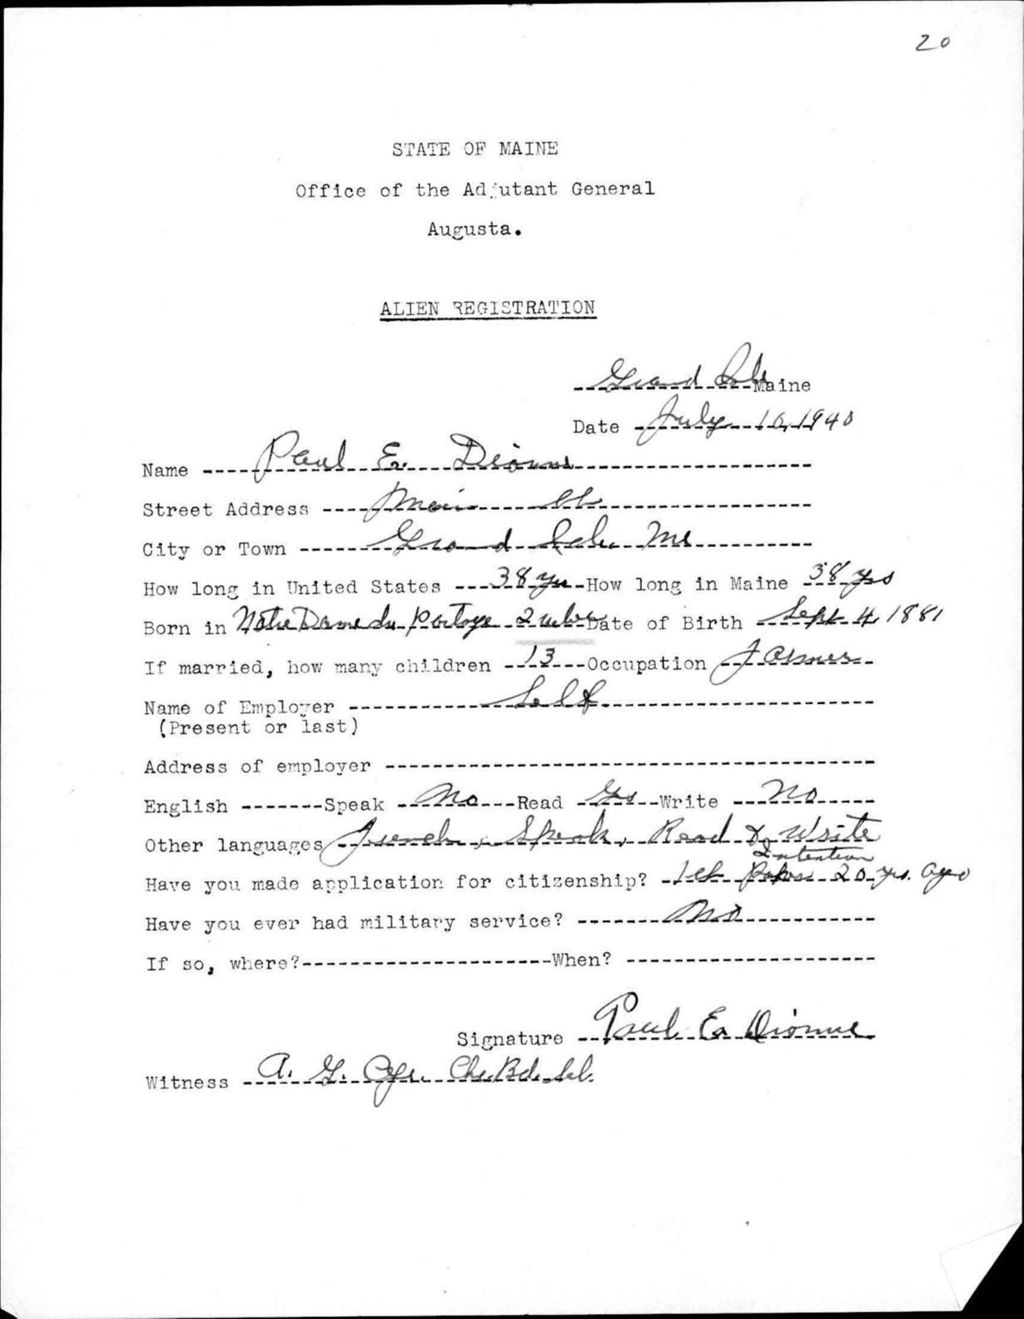 20
STATE OF MAINE
Office of the Adjutant General
Augusta.
ALIEN REGISTRATION
Grand Isle Maine
Date July 10, 1940
Name Paul E. Dionne
Street Address Main St.
City or Town Grand Isle Me
How long in United States 38 yrs How long in Maine 38 yrs
Born in Notre Dame du Portage Quebec Date of Birth Sept 4, 1881
If married, how many children 13 Occupation Farmer
Name of Employer Self
(Present or last)
Address of employer
English Speak No Read Yes Write No
Other languages French, Speak, Read & Write
Intention
Have you made application for citizenship? 1st Papers 20 yrs. ago
Have you ever had military service? No
If so, where? When?
Signature Paul E. Dionne
Witness A. G. Cyr. Ch. Bd. Sel.